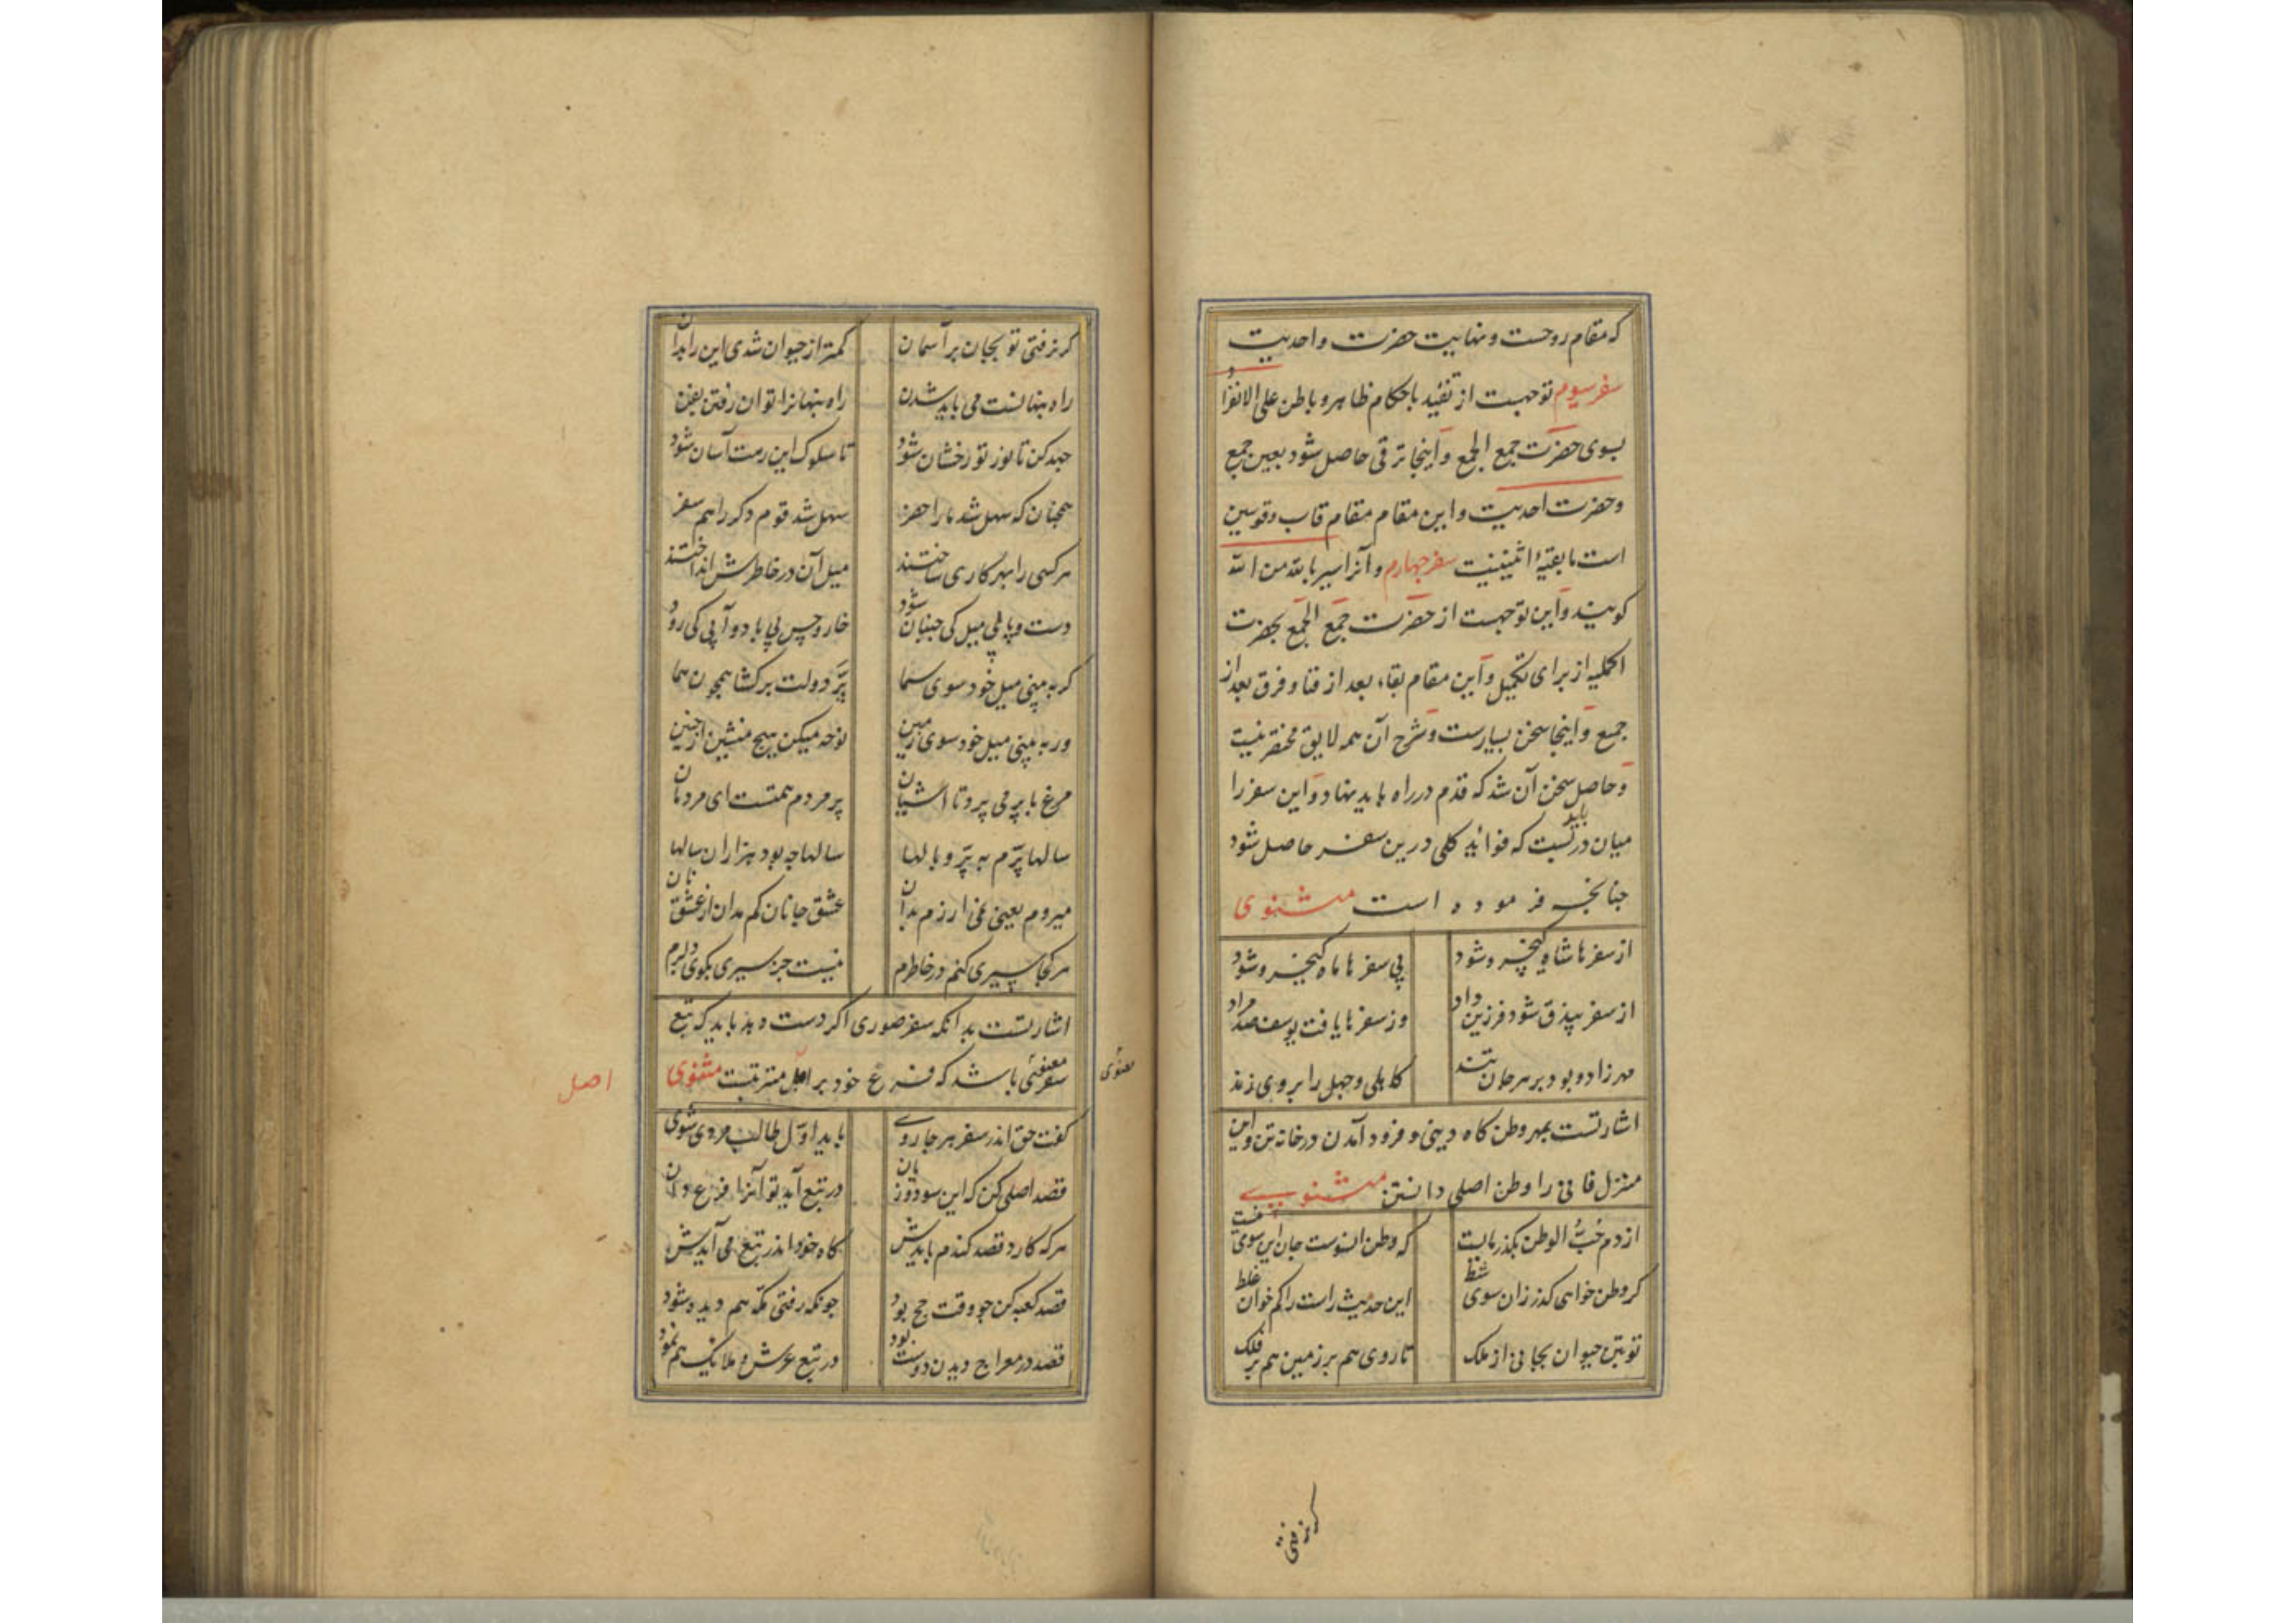 که مقام روحست و نهایت حضرت واحدیت
سفر سیوم توجهست از تقید باحکام ظاهر و باطن علی الانفراد
بسوی حضرت جمع الجمع و اینجا ترقی حاصل شود بعین جمع
و حضرت احدیت و این مقام مقام قاب و قوسین
است تا بقیهٔ اثنینیت سفر چهارم و آنرا سیر بالله من الله
کویند و این توجهست از حضرت جمع الجمع بحضرت
اکملیه از برای تکمیل و این مقام بقاء بعد از فنا و فرق بعد از
جمع و اینجا سخن بسیارست و شرح آن همه لایق مختصر نیست
و حاصل سخن آن شد که قدم در راه باید نهاد و این سفر را
میان در باید بست که فواید کلی درین سفر حاصل شود
چنانچه فرموده است مثنوی
از سفرها شاه کیخسرو شود بی سفرها ماه کیخسرو شود
از سفر بیذق شود فرزین داد وز سفرها یافت یوسف صد مراد
کاهلی و جهل را بر وی زنند
اشارتست بمهر وطن کاه دینی و فرود آمدن در خانه تن و این
منزل فانی را وطن اصلی دانستن مثنوی
از دم حُبُّ الوطن بکذر مایست که وطن آنسوست جان این سوی نیست
کر وطن خواهی کذر زان سوی شط این حدیث راست را کم خوان غلط
تو بتن حیوان بجانی از ملک تا روی هم بر زمین هم بر فلک
کر نرفتی
کر نرفتی تو بجان بر آسمان کمتر از حیوان شدی این را بدان
راه پنهانست می باید شدن راه پنهانرا توان رفتن بفن
جهد کن تا نور تو رخشان شود تا سلوک این رهت آسان شود
همچنان که سهل شد ما را حضر سهل شد قوم دکر را هم سفر
هر کسی را بهر کاری ساختند میل آن در خاطرش انداختند
دست و پا بی میل کی جنبان شود خار و خس بی باد و آبی کی رود
کر به بینی میل خود سوی سما پرّ دولت برکشا همچون هما
ور به بینی میل خود سوی زمین نوحه میکن هیچ منشین از حنین
مرغ با پر می پرد تا آشیان پر مردم همتست ای مردمان
سالها پرّم به پرّ و بالها سالها چه بود هزاران سالها
میروم یعنی نمی ارزم بدان عشق جانان کم مدان از عشق نان
هر کجا سیری کنم در خاطرم نیست جز سیری بکوی دلبرم
اشارتست بدانکه سفر صوری اکر دست دهد باید که تبع
سفر معنوی باشد که فرع خود بر اصل مترتبست مثنوی
معنوی
اصل
کفت حق اندر سفر هر جا روی باید اوّل طالب مردی شوی
قصد اصلی کن که این سود و زیان در تبع آید تو آنرا فرع دان
هر که کارد قصد کندم بایدش کاه خود اندر تبع می آیدش
قصد کعبه کن چو وقت حج بود چونکه رفتی مکه هم دیده شود
قصد در معراج دیدن دوست بود در تبع عرش و ملائک هم نمود